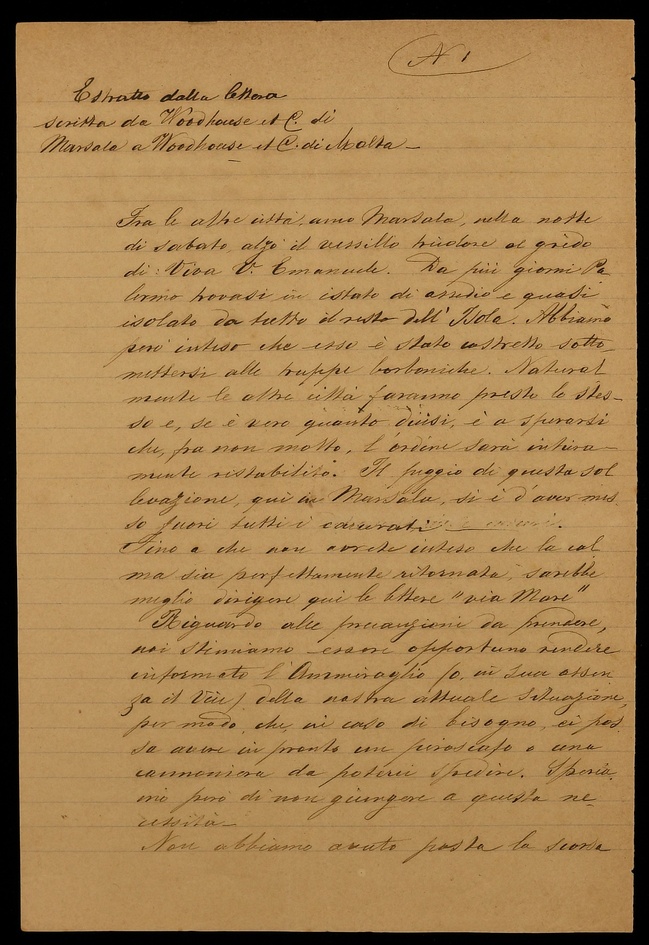 N 1
Estratto dalla lettera
scritta da Woodhouse et C. di
Marsala a Woodhouse et C. di Malta —
Fra le altre città, anco Marsala, nella notte
di sabato, alzò il vessillo tricolore al grido
di: Viva V. Emanuele. Da più giorni Pa-
lermo trovasi in istato di assedio e quasi
isolato da tutto il resto dell'Isola. Abbiamo
però inteso che esso è stato costretto sotto-
mettersi alle truppe borboniche. Natural
mente le altre città faranno presto lo stes-
so e, se è vero quanto dicesi, è a sperarsi
che, fra non molto, l'ordine sarà intiera-
mente ristabilito. Il peggio di questa sol
levazione, qui in Marsala, si è d'aver mes
so fuori tutti i carcerati
Fino a che non avrete inteso che la cal
ma sia perfettamente ritornata, sarebbe
meglio dirigere qui le lettere "via Mare"
Riguardo alle precauzioni da prendere,
noi stimiamo essere opportuno rendere
informato l'Ammiraglio (o, in sua assen
za il Vice) della nostra attuale situazione,
per modo, che in caso di bisogno, ci pos
sa avere in pronto un piroscafo o una
cannoniera da poterci spedire. Speria
mo però di non giungere a questa ne-
cessità —
Non abbiamo avuto posta la scorsa